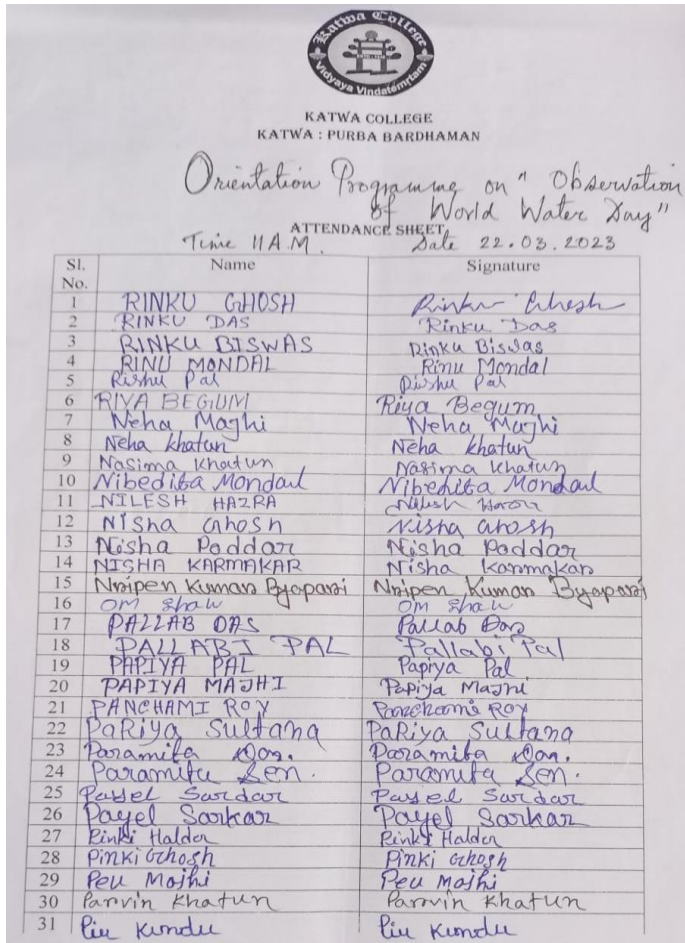 Katwa College
Vidyaya Vindatemrtam
KATWA COLLEGE
KATWA : PURBA BARDHAMAN
Orientation Programme on "Observation
of World Water Day"
ATTENDANCE SHEET
Time 11 A.M. Date 22.03.2023
Sl. No. Name Signature
1 RINKU GHOSH Rinku Ghosh
2 RINKU DAS Rinku Das
3 RINKU BISWAS Rinku Biswas
4 RINU MONDAL Rinu Mondal
5 Rishu Pal Rishu Pal
6 RIYA BEGUM Riya Begum
7 Neha Majhi Neha Majhi
8 Neha Khatun Neha Khatun
9 Nasima Khatun Nasima Khatun
10 Nibedita Mondal Nibedita Mondal
11 NILESH HAZRA Nilesh Hazra
12 Nisha Ghosh Nisha Ghosh
13 Nisha Poddar Nisha Poddar
14 NISHA KARMAKAR Nisha Karmakar
15 Nripen Kumar Byapari Nripen Kumar Byapari
16 OM Shaw OM Shaw
17 PALLAB DAS Pallab Das
18 PALLABI PAL Pallabi Pal
19 PAPIYA PAL Papiya Pal
20 PAPIYA MAJHI Papiya Majhi
21 PANCHAMI ROY Panchami Roy
22 PaRiya Sultana PaRiya Sultana
23 Paramita Das. Paramita Das.
24 Paramita Sen. Paramita Sen.
25 Payel Sardar Payel Sardar
26 Payel Sarkar Payel Sarkar
27 Pinki Halder Pinki Halder
28 Pinki Ghosh Pinki Ghosh
29 Peu Majhi Peu Majhi
30 Parvin Khatun Parvin Khatun
31 Piu Kundu Piu Kundu